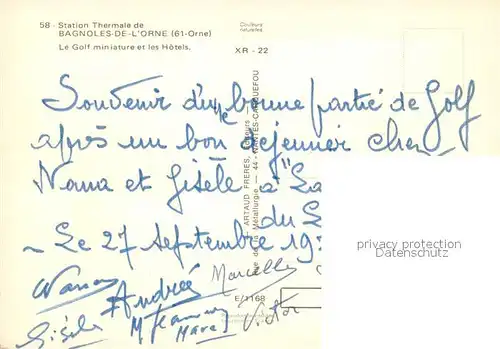 58 - Station Thermale de
BAGNOLES-DE-L'ORNE (61-Orne)
Le Golf miniature et les Hôtels.
Couleurs
naturelles
XR - 22
Souvenir d'une bonne partie de Golf
après un bon déjeuner chez
Nana et Gisèle à "La
du
- Le 27 Septembre 19
ARTAUD FRERES, Editeurs
de la Métallurgie — 44 - NANTES-CARQUEFOU
privacy protection
Datenschutz
Nana
Andrée
Marcelle
Gisèle
Victor
E/1168